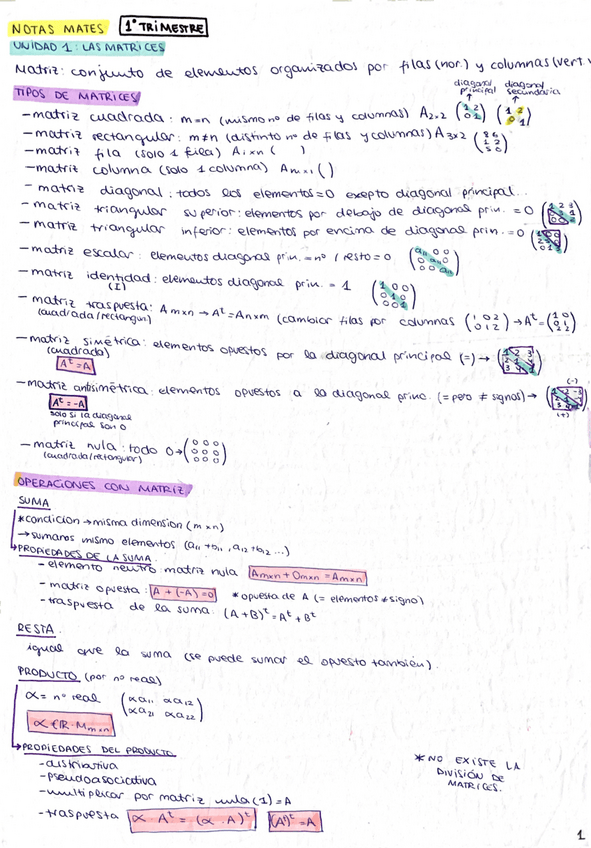 NOTAS MATES 1º TRIMESTRE
UNIDAD 1: LAS MATRICES
Matriz: conjunto de elementos organizados por filas (hor.) y columnas (vert.
diagonal principal diagonal secundaria
TIPOS DE MATRICES
- matriz cuadrada: m=n (mismo nº de filas y columnas) A2x2
- matriz rectangular: m≠n (distinto nº de filas y columnas) A3x2 (8 6 1 2 5 0)
- matriz fila (solo 1 fila) A1xn ( )
- matriz columna (solo 1 columna) Amx1 ()
- matriz diagonal: todos los elementos=0 exepto diagonal principal...
- matriz triangular superior: elementos por debajo de diagonal prin. = 0
- matriz triangular inferior: elementos por encima de diagonal prin. = 0
- matriz escalar: elementos diagonal prin. = nº / resto = 0 (a11 0 0 0 a11 0 0 0 a11)
- matriz identidad: elementos diagonal prin. = 1 (1 0 0 0 1 0 0 0 1)
(I)
- matriz traspuesta: Amxn → Aᵗ=Anxm (cambiar filas por columnas (1 0 2 0 1 2) → Aᵗ=(1 0 0 1 2 2)
(cuadrada/rectangular)
- matriz simétrica: elementos opuestos por la diagonal principal (=) →
(cuadrada)
Aᵗ=A
- matriz antisimétrica: elementos opuestos a la diagonal princ. (= pero ≠ signos) →
(-)
(+)
Aᵗ=-A
solo si la diagonal
principal son 0
- matriz nula: todo 0 → (0 0 0 0 0 0 0 0 0)
(cuadrada/rectangular)
OPERACIONES CON MATRIZ
SUMA
*condición → misma dimensión (m×n)
→ sumamos mismo elementos (a11+b11, a12+b12...)
PROPIEDADES DE LA SUMA
- elemento neutro matriz nula Amxn + Omxn = Amxn
- matriz opuesta: A + (-A) = 0 *opuesta de A (= elementos ≠ signo)
- traspuesta de la suma: (A+B)ᵗ = Aᵗ + Bᵗ
RESTA.
igual que la suma (se puede sumar el opuesto también).
PRODUCTO (por nº real)
α = nº real (αa11 αa12 αa21 αa22)
α ∈ ℝ · Mmxn
PROPIEDADES DEL PRODUCTO
- distributiva
- pseudoasociativa
- multiplicar por matriz nula (1) = A
- traspuesta α · Aᵗ = (α · A)ᵗ (Aᵗ)ᵗ = A
*NO EXISTE LA
DIVISIÓN DE
MATRICES.
1